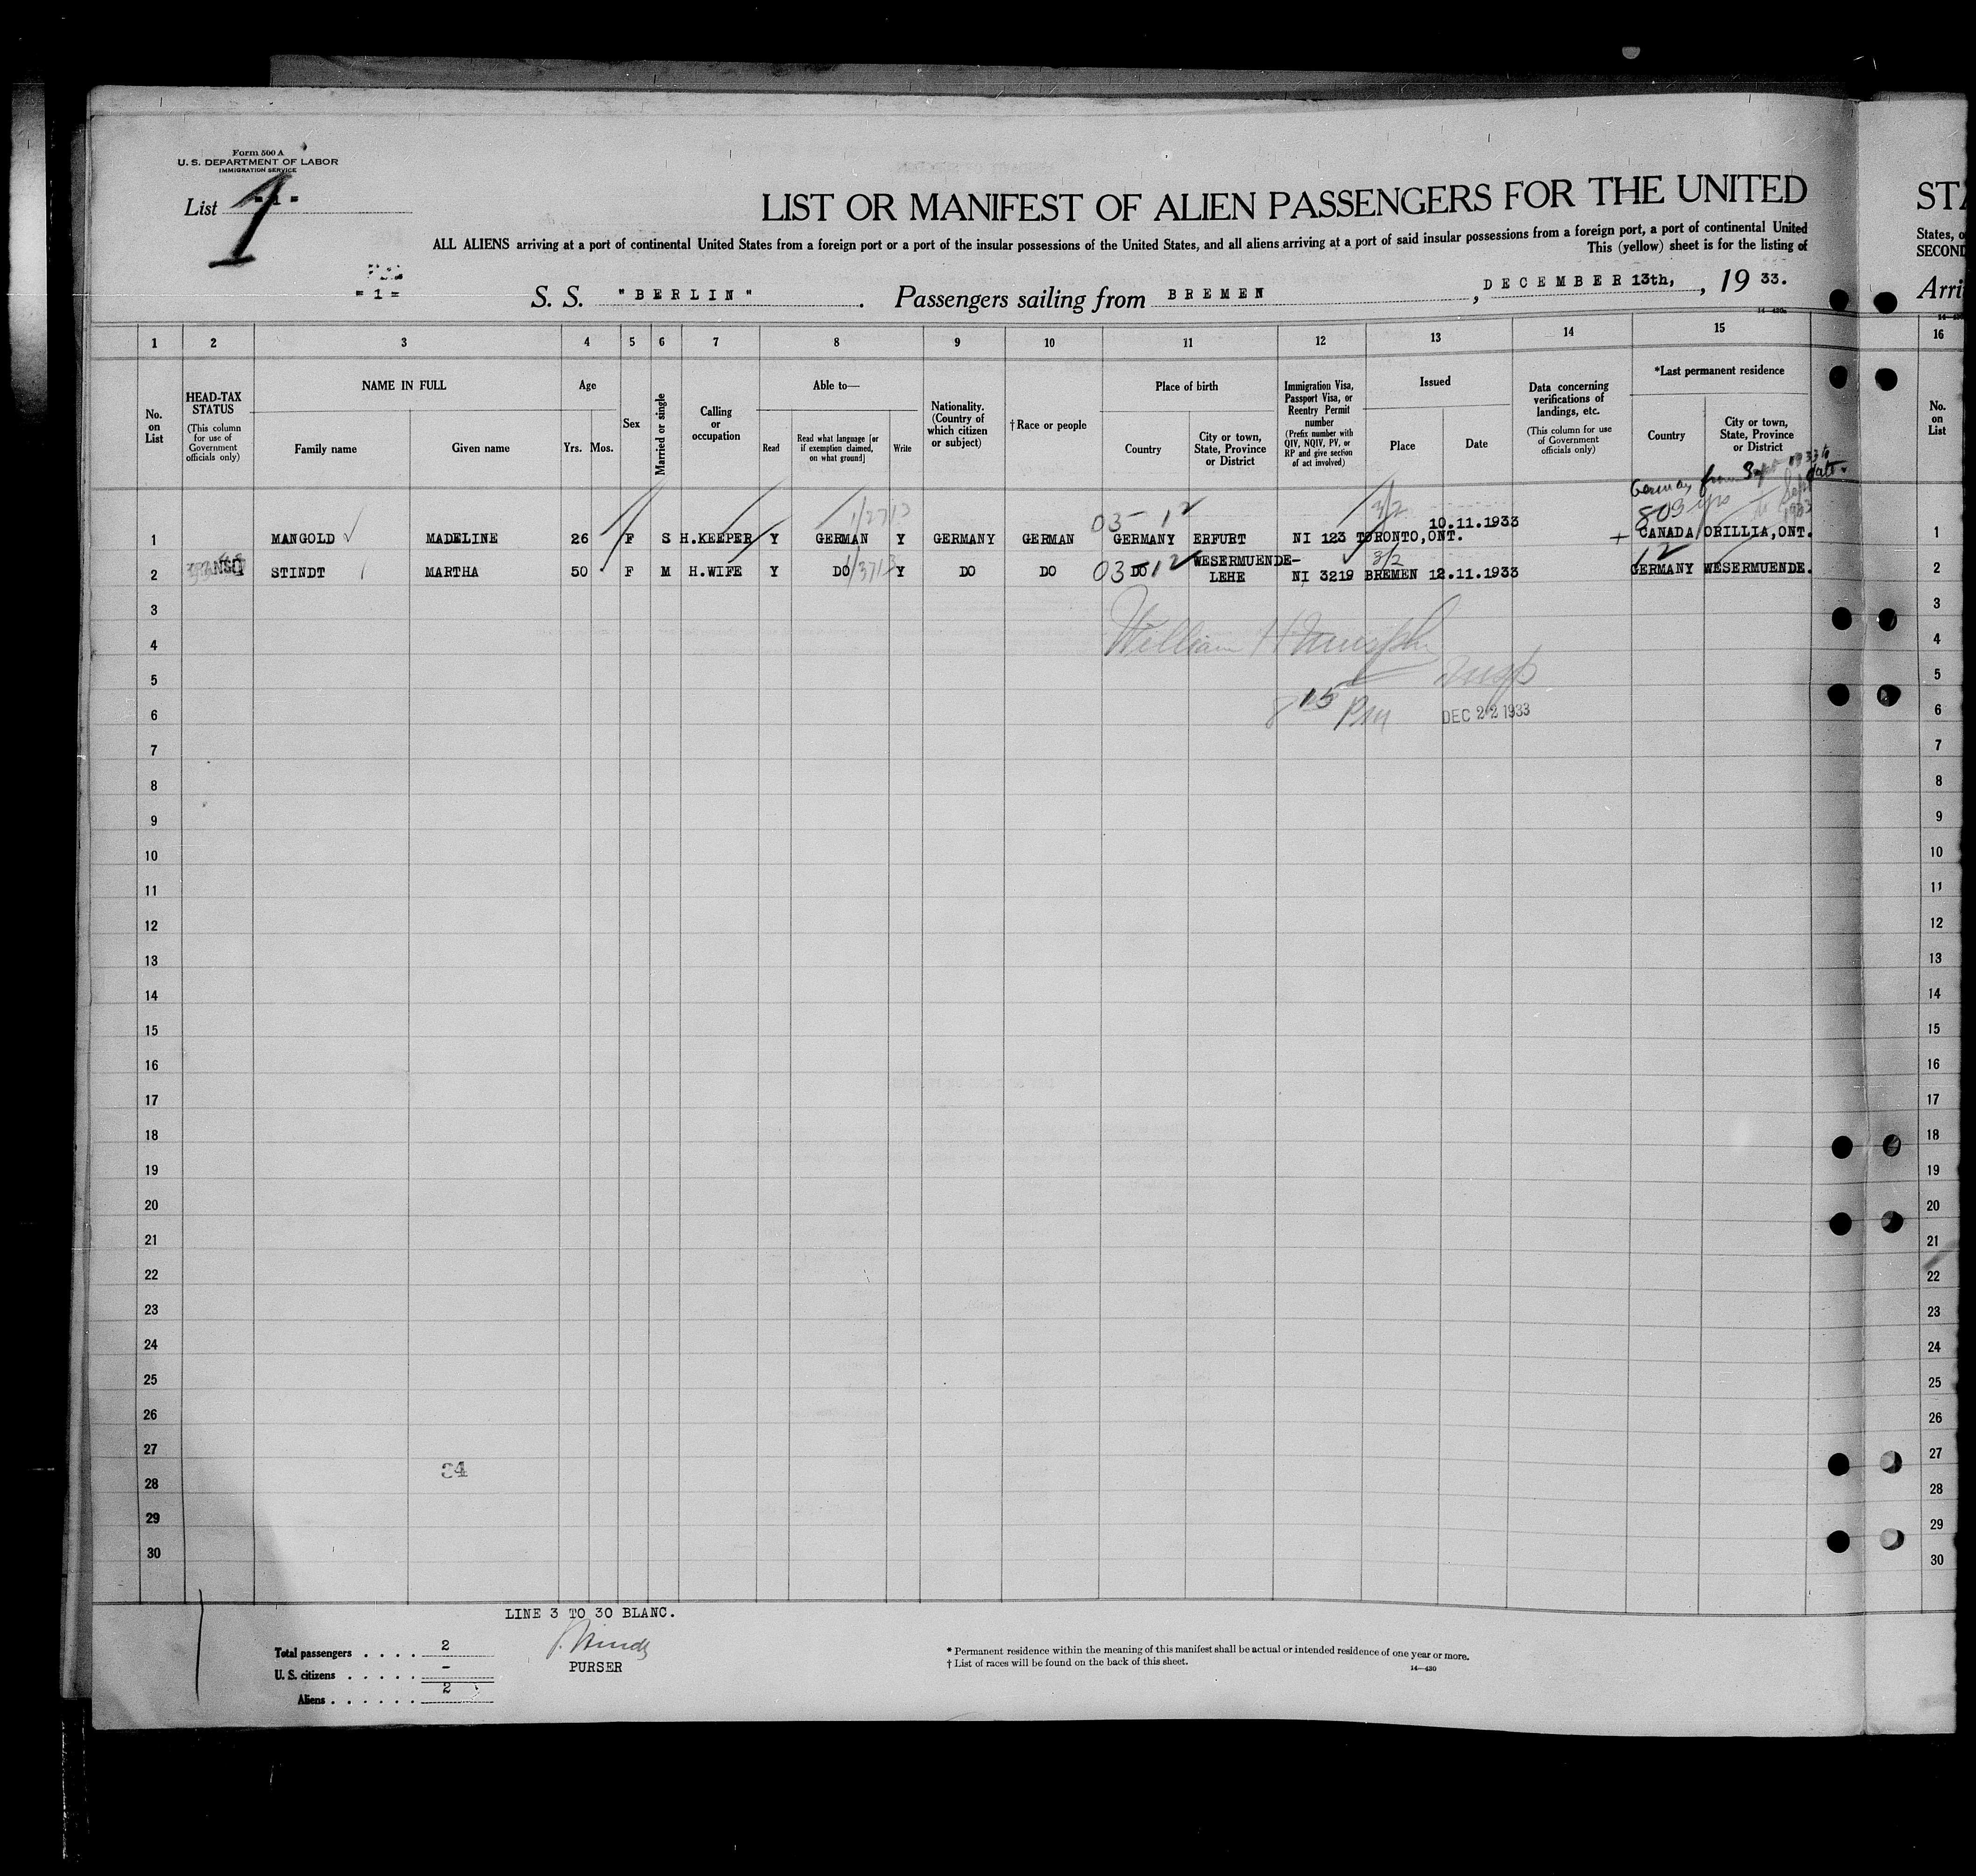 Form 500 A
U. S. DEPARTMENT OF LABOR
IMMIGRATION SERVICE
List - 1 -
1
LIST OR MANIFEST OF ALIEN PASSENGERS FOR THE UNITED
ALL ALIENS arriving at a port of continental United States from a foreign port or a port of the insular possessions of the United States, and all aliens arriving at a port of said insular possessions from a foreign port, a port of continental United
This (yellow) sheet is for the listing of
= 1 =
S. S. "BERLIN". Passengers sailing from BREMEN, DECEMBER 13th, , 19 33.
14—430
1 2 3 4 5 6 7 8 9 10 11 12 13 14 15
No. on List
HEAD-TAX STATUS
(This column for use of Government officials only)
NAME IN FULL
Family name
Given name
Age
Yrs. Mos.
Sex
Married or single
Calling or occupation
Able to—
Read
Read what language [or if exemption claimed, on what ground]
Write
Nationality. (Country of which citizen or subject)
†Race or people
Place of birth
Country
City or town, State, Province or District
Immigration Visa, Passport Visa, or Reentry Permit number
(Prefix number with QIV, NQIV, PV, or RP and give section of act involved)
Issued
Place
Date
Data concerning verifications of landings, etc.
(This column for use of Government officials only)
*Last permanent residence
Country
City or town, State, Province or District
Germany from Sept 1933 to date.
03 - 12 3/2
1 MANGOLD MADELINE 26 F S H.KEEPER Y GERMAN Y GERMANY GERMAN GERMANY ERFURT NI 123 TORONTO,ONT. 10.11.1933 + CANADA ORILLIA,ONT.
03 - 12 3/2 12
2 STINDT MARTHA 50 F M H.WIFE Y DO Y DO DO DO WESERMUENDE-LEHE NI 3219 BREMEN 12.11.1933 GERMANY WESERMUENDE.
3
4 William H
5 Insp
6 8 15 PM DEC 22 1933
7
8
9
10
11
12
13
14
15
16
17
18
19
20
21
22
23
24
25
26
27
28
29
30
LINE 3 TO 30 BLANC.
Total passengers . . . . 2
U. S. citizens . . . . . -
Aliens . . . . . . 2
PURSER
* Permanent residence within the meaning of this manifest shall be actual or intended residence of one year or more.
† List of races will be found on the back of this sheet.
14—430
STA
States, o
SECOND
Arri
16
No. on List
1
2
3
4
5
6
7
8
9
10
11
12
13
14
15
16
17
18
19
20
21
22
23
24
25
26
27
28
29
30